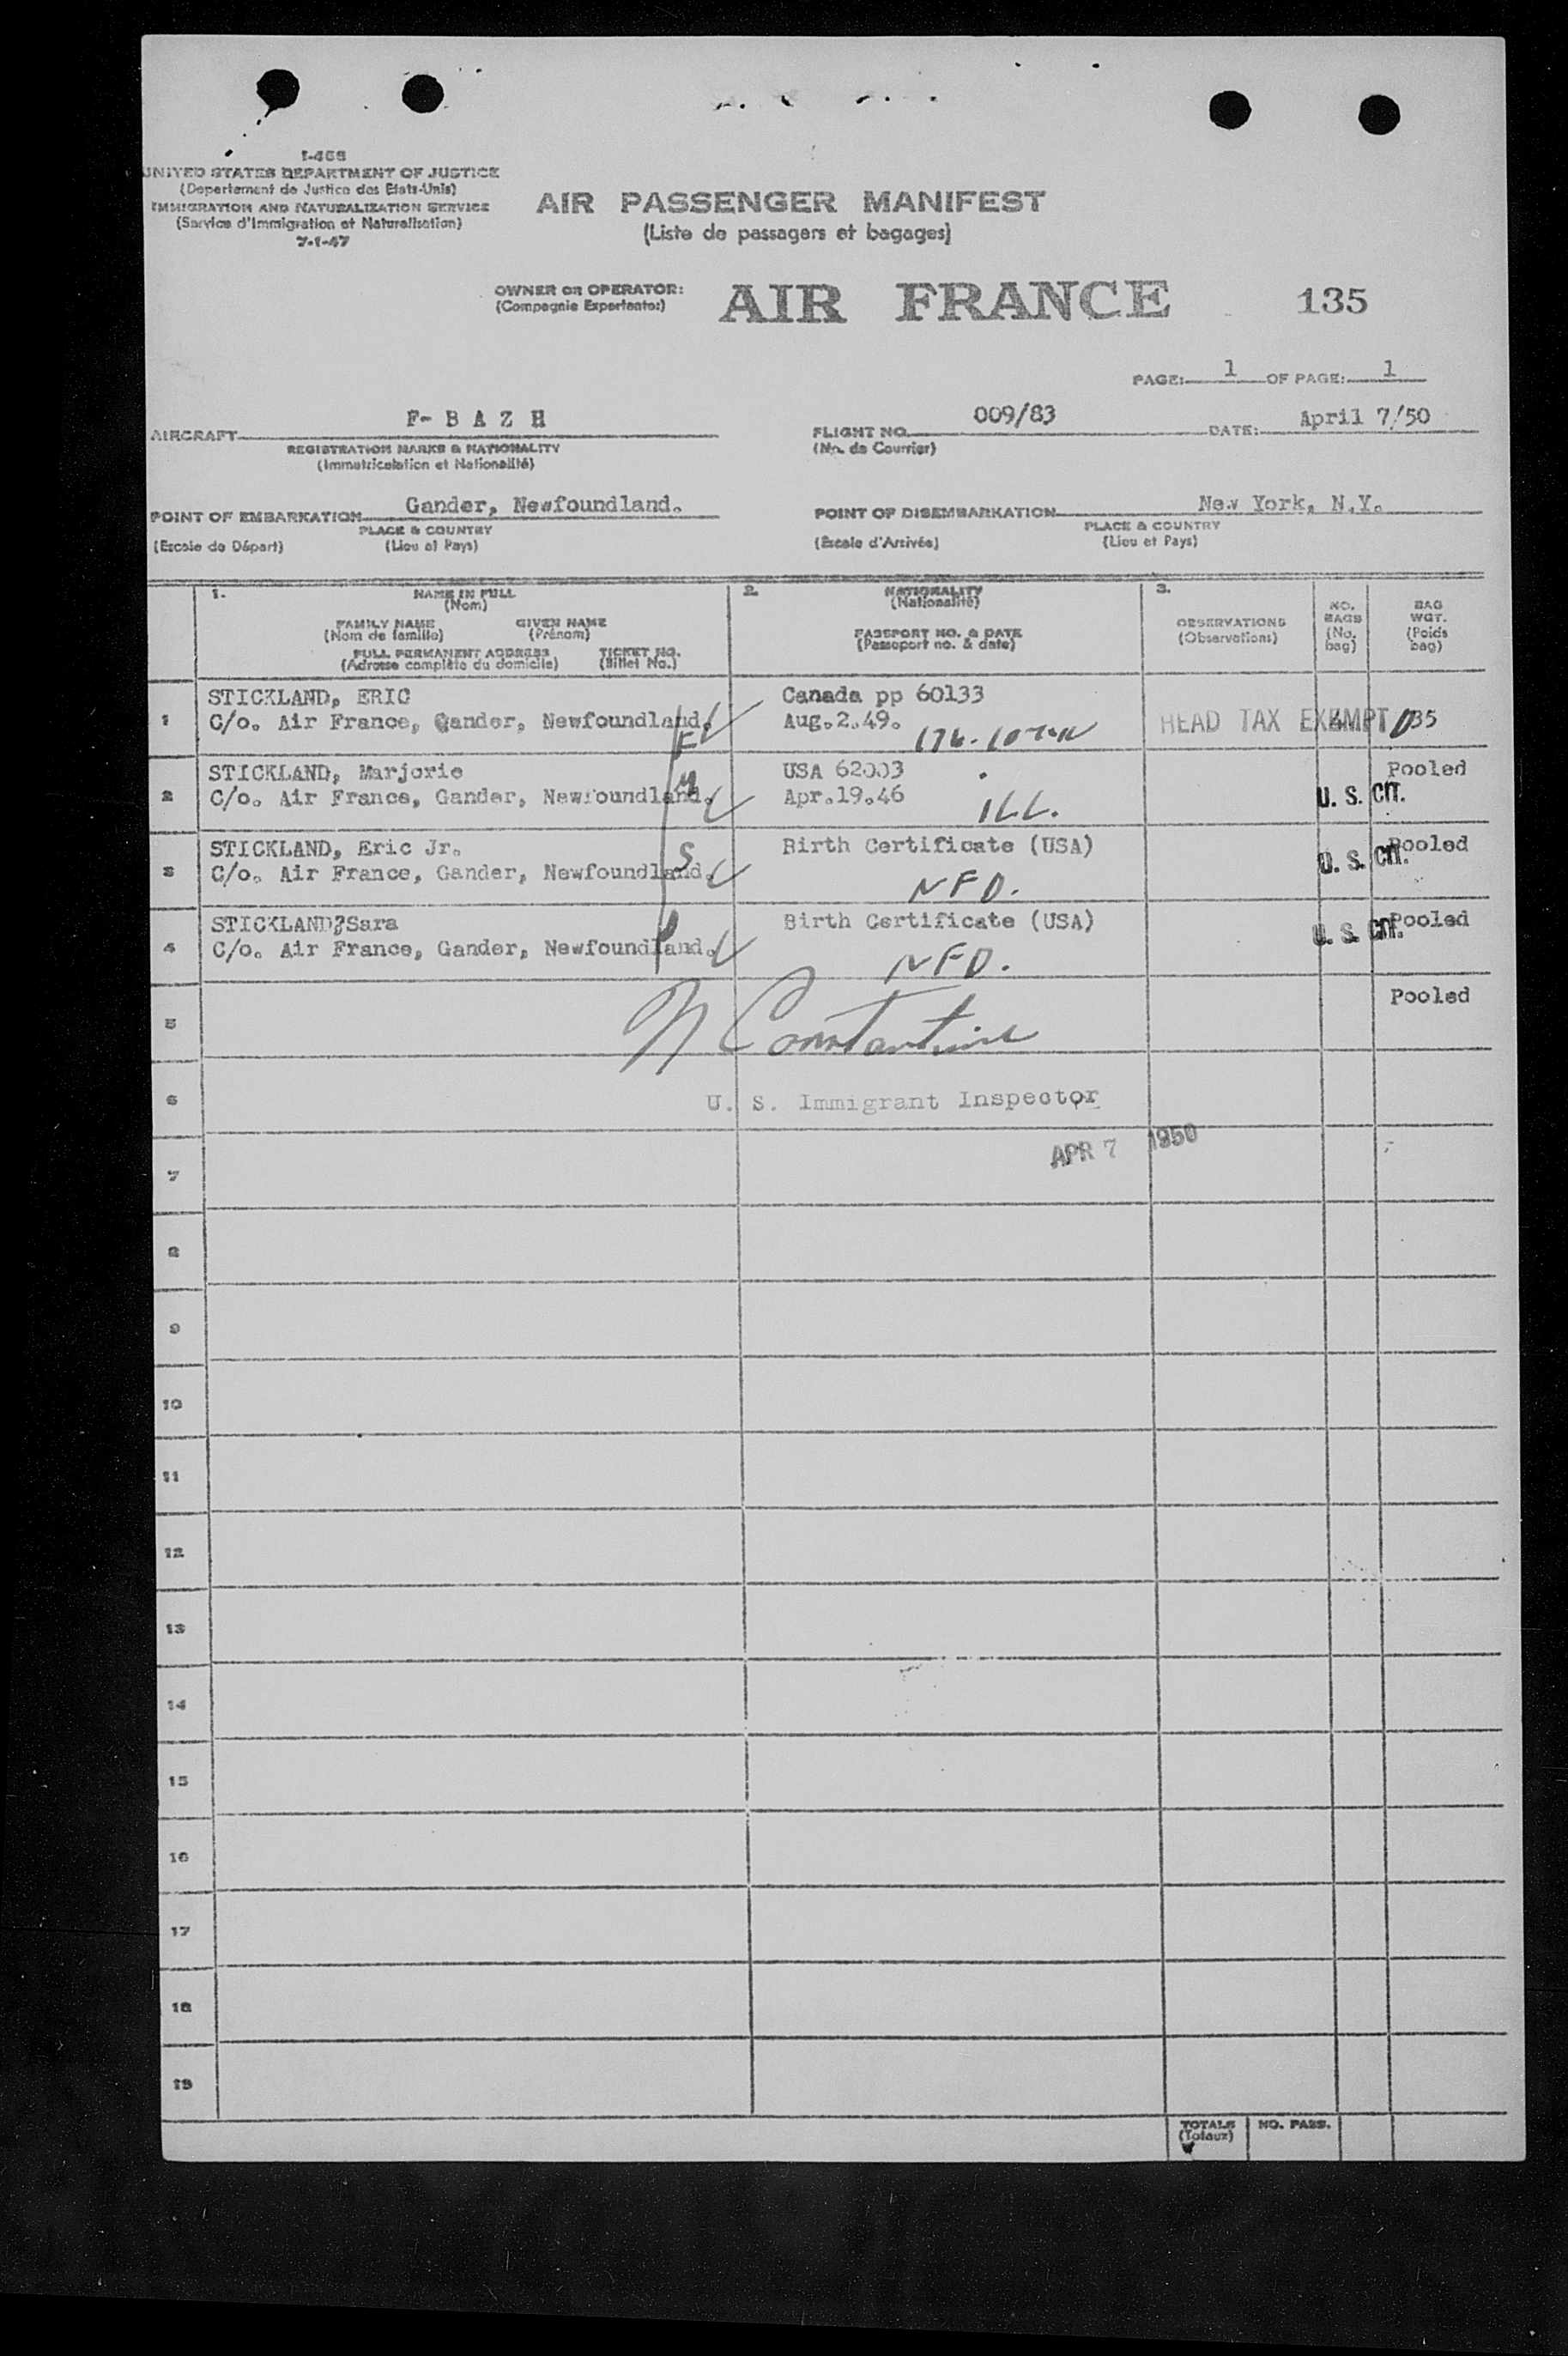 I-466
UNITED STATES DEPARTMENT OF JUSTICE
(Departement de Justice des Etats-Unis)
IMMIGRATION AND NATURALIZATION SERVICE
(Service d'Immigration et Naturalisation)
7-1-47
AIR PASSENGER MANIFEST
(Liste de passagers et bagages)
OWNER OR OPERATOR:
(Compagnie Exportante:)
AIR FRANCE 135
PAGE: 1 OF PAGE: 1
AIRCRAFT F- B A Z H
REGISTRATION MARKS & NATIONALITY
(Immatriculation et Nationalité)
FLIGHT NO. 009/83 DATE: April 7/50
(No. de Courrier)
POINT OF EMBARKATION Gander, Newfoundland.
PLACE & COUNTRY
(Escale de Départ) (Lieu et Pays)
POINT OF DISEMBARKATION New York, N.Y.
PLACE & COUNTRY
(Escale d'Arrivée) (Lieu et Pays)
1. NAME IN FULL
(Nom)
FAMILY NAME GIVEN NAME
(Nom de famille) (Prénom)
FULL PERMANENT ADDRESS TICKET NO.
(Adresse complète du domicile) (Billet No.)
2. NATIONALITY
(Nationalité)
PASSPORT NO. & DATE
(Passeport no. & date)
3.
OBSERVATIONS
(Observations)
NO.
BAGS
(No.
bag)
BAG
WGT.
(Poids
bag)
1 STICKLAND, ERIC Canada pp 60133
C/o. Air France, Gander, Newfoundland. Aug.2.49. HEAD TAX EXEMPT 35
F
2 STICKLAND, Marjorie USA 62003 Pooled
C/o. Air France, Gander, Newfoundland. Apr.19.46 U. S. CIT.
M ILL.
3 STICKLAND, Eric Jr. Birth Certificate (USA) Pooled
C/o. Air France, Gander, Newfoundland. U. S. CIT.
S NFD.
4 STICKLAND?Sara Birth Certificate (USA) Pooled
C/o. Air France, Gander, Newfoundland. U. S. CIT.
NFD.
5 Pooled
N Constantine
6 U. S. Immigrant Inspector
APR 7 1950
7
8
9
10
11
12
13
14
15
16
17
18
19
TOTALS NO. PASS.
(Totaux)